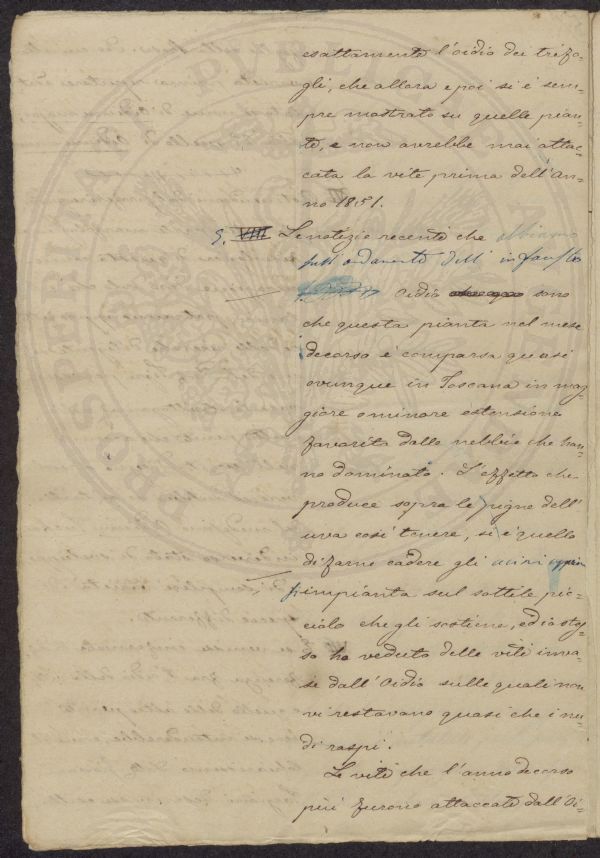 esattamente l'oidio dei trifo-
gli, che allora e poi si è sem-
pre mostrato su quelle pian-
te, e non avrebbe mai attac-
cata la vite prima dell'An-
no 1851.
§. VIII Le notizie recenti che abbiamo
sull'andamento dell'infausto
Oidio sono
che questa pianta nel mese
decorso è comparsa quasi
ovunque in Toscana in mag-
giore o minore estensione
favorita dalle nebbie che han-
no dominato. L'effetto che
produce sopra le pigne dell'
uva così tenere, si è quello
di farne cadere gli acini appena
s'impianta sul sottile pic-
ciolo che gli sostiene, ed io stes-
so ho veduto delle viti inva-
se dall'Oidio sulle quali non
vi restavano quasi che i nu-
di raspi.
Le viti che l'anno decorso
più furono attaccate dall'Oi-